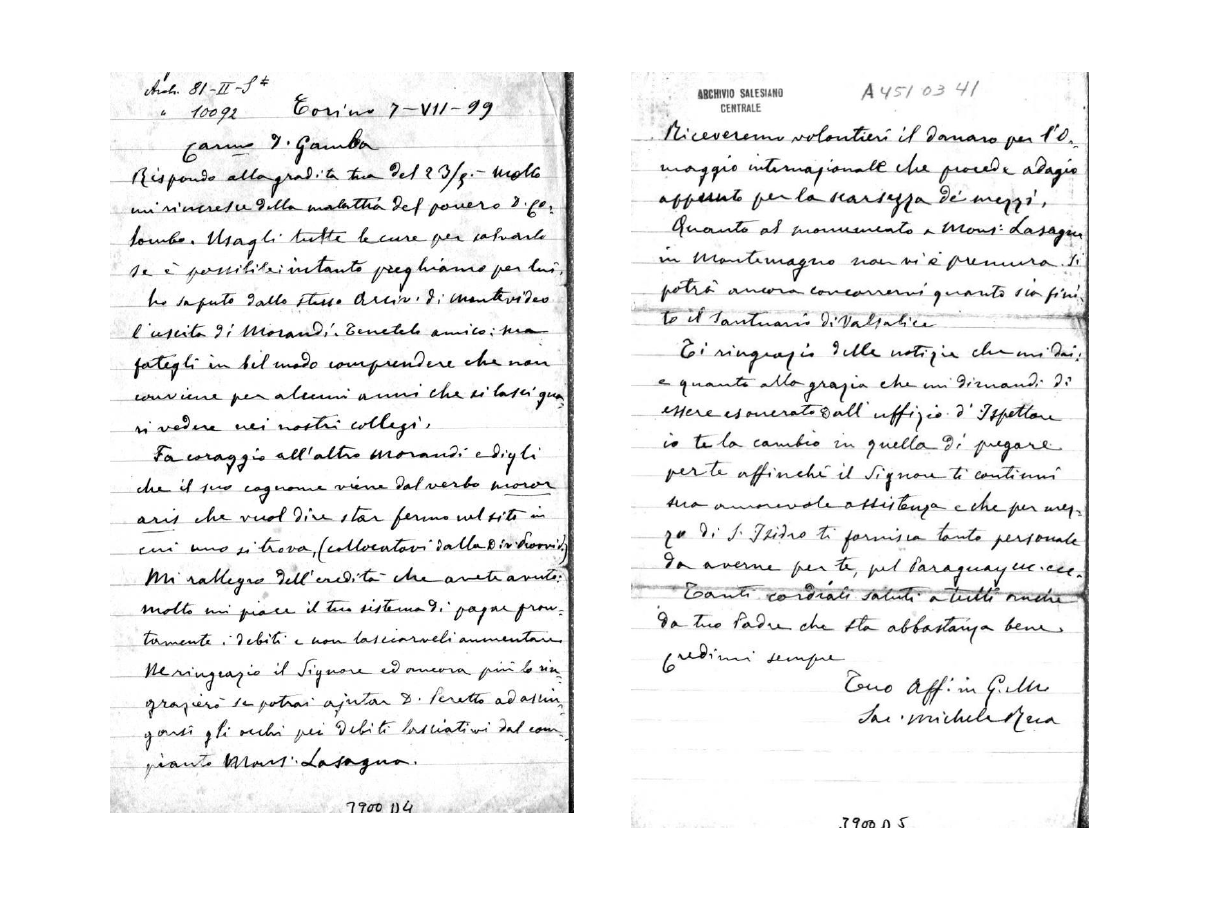 Arch. 81-II-S
" 10092
Torino 7-VII-99
Carmo D. Gamba
Rispondo alla gradita tua del 23/5.- Molto
mi rincresce della malattia del povero D. Co-
lombo. Usagli tutte le cure per salvarlo
se è possibile: intanto preghiamo per lui.
ho saputo dallo stesso Arciv. di Montevideo
l'uscita di Morandi. Tenetelo amico: ma
fategli in bel modo comprendere che non
conviene per alcuni anni che si lasci qua-
si vedere nei nostri collegi.
Fa coraggio all'altro Morandi e digli
che il suo cognome viene dal verbo moror
aris che vuol dire star fermo nel sito in
cui uno si trova, (collocatovi dalla Div. Provvid)
Mi rallegro dell'eredità che avete avuto:
molto mi piace il tuo sistema di pagar pron-
tamente i debiti e non lasciarveli aumentare
Ne ringrazio il Signore ed ancora più lo rin-
grazierò se potrai ajutar D. Peretto ad asciu-
garsi gli occhi pei debiti lasciativi dal com-
pianto Mons: Lasagna.
7900 D4
ARCHIVIO SALESIANO
CENTRALE
A 451 03 41
Riceveremo volontieri il danaro per l'O-
maggio internazionale che procede adagio
appunto per la scarsezza de' mezzi.
Quanto al monumento a Mons: Lasagna
in Montemagno non vi è premura. Si
potrà ancora concorrervi quanto sia fini-
to il Santuario di Valsalice
Ti ringrazio delle notizie che mi dai:
e quanto alla grazia che mi dimandi di
essere esonerato dall'uffizio d'Ispettore
io te la cambio in quella di pregare
per te affinchè il Signore ti continui
sua amorevole assistenza e che per mez-
zo di S. Isidro ti fornisca tanto personale
da averne per te, pel Paraguay ecc. ecc.
Tanti cordiali saluti a tutti anche
da tuo Padre che sta abbastanza bene
Credimi sempre
Tuo Aff. in G. M.
Sac. Michele Rua
7900 D5